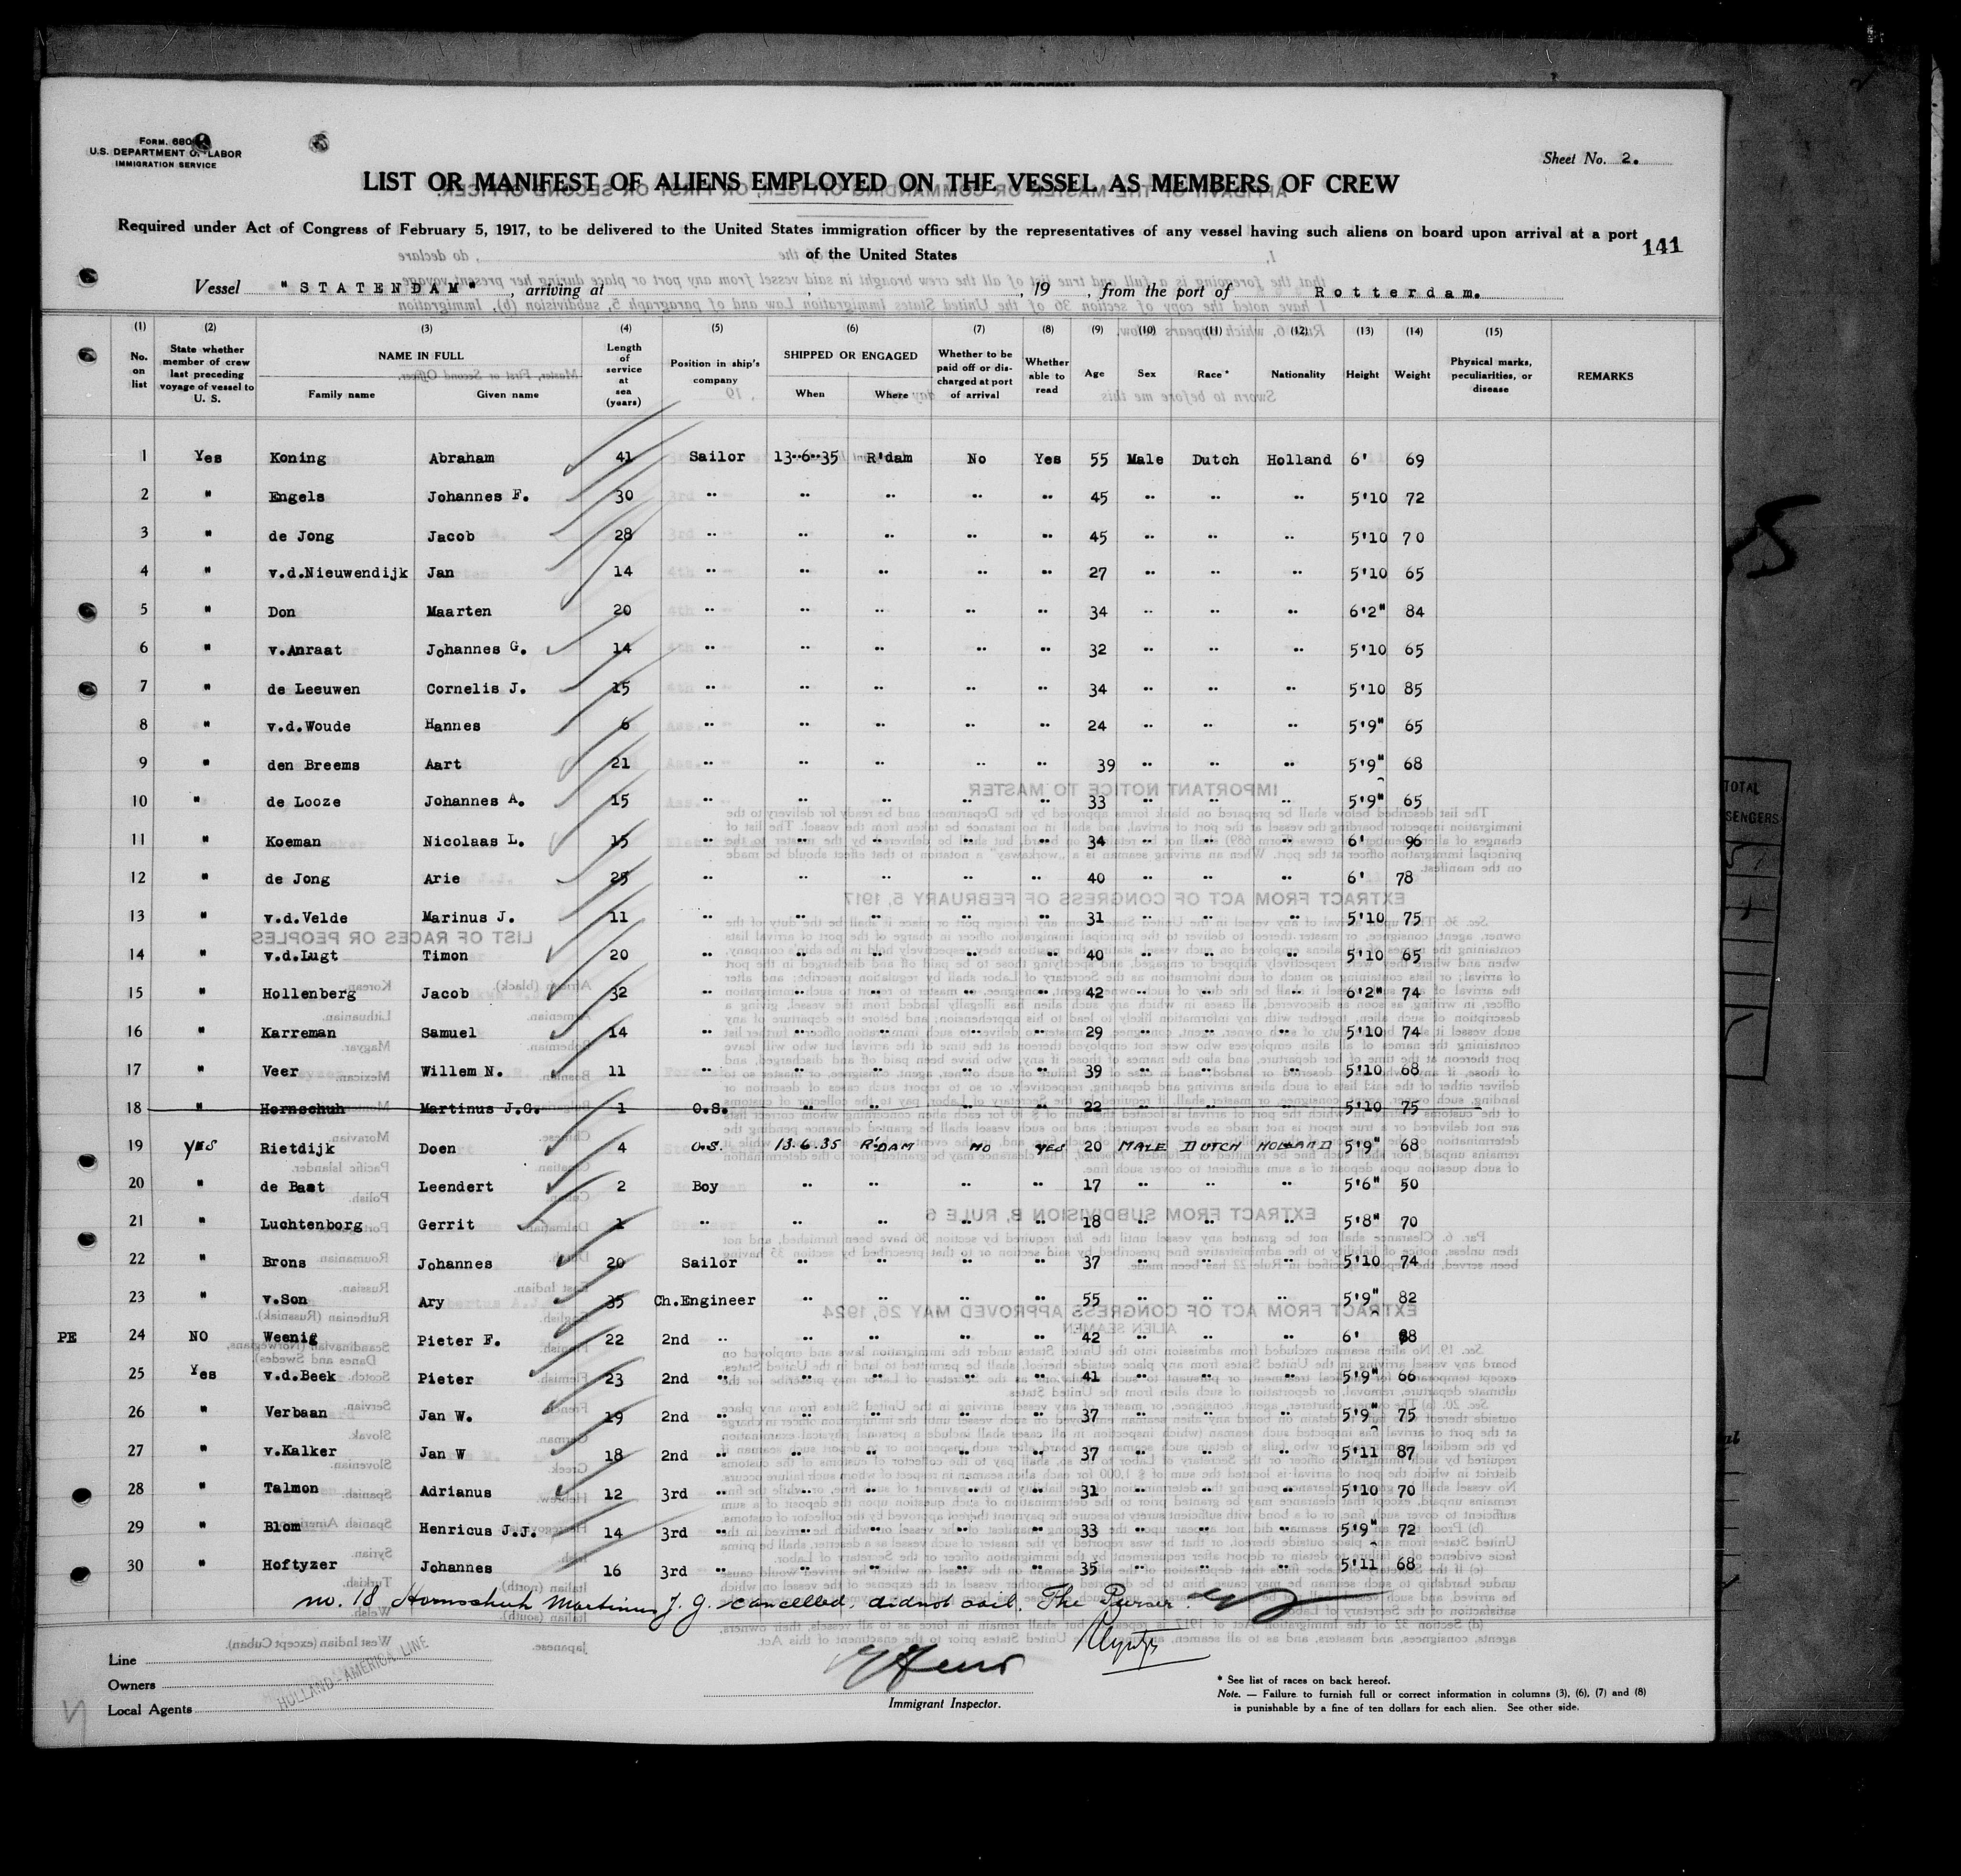 FORM. 680
U.S. DEPARTMENT OF LABOR
IMMIGRATION SERVICE
Sheet No. 2.
LIST OR MANIFEST OF ALIENS EMPLOYED ON THE VESSEL AS MEMBERS OF CREW
Required under Act of Congress of February 5, 1917, to be delivered to the United States immigration officer by the representatives of any vessel having such aliens on board upon arrival at a port
of the United States
141
Vessel "STATENDAM", arriving at , 19 , from the port of Rotterdam.
(1) (2) (3) (4) (5) (6) (7) (8) (9) (10) (11) (12) (13) (14) (15)
No. on list State whether member of crew last preceding voyage of vessel to U. S. NAME IN FULL Family name Given name Length of service at sea (years) Position in ship's company SHIPPED OR ENGAGED When Where Whether to be paid off or discharged at port of arrival Whether able to read Age Sex Race* Nationality Height Weight Physical marks, peculiarities, or disease REMARKS
1 Yes Koning Abraham 41 Sailor 13-6-35 R'dam No Yes 55 Male Dutch Holland 6' 69
2 " Engels Johannes F. 30 " " " " " 45 " " " 5'10 72
3 " de Jong Jacob 28 " " " " " 45 " " " 5'10 70
4 " v.d.Nieuwendijk Jan 14 " " " " " 27 " " " 5'10 65
5 " Don Maarten 20 " " " " " 34 " " " 6'2" 84
6 " v.Anraat Johannes G. 14 " " " " " 32 " " " 5'10 65
7 " de Leeuwen Cornelis J. 15 " " " " " 34 " " " 5'10 85
8 " v.d.Woude Hannes 6 " " " " " 24 " " " 5'9" 65
9 " den Breems Aart 21 " " " " " 39 " " " 5'9" 68
10 " de Looze Johannes A. 15 " " " " " 33 " " " 5'9" 65
11 " Koeman Nicolaas L. 15 " " " " " 34 " " " 6' 96
12 " de Jong Arie 25 " " " " " 40 " " " 6' 78
13 " v.d.Velde Marinus J. 11 " " " " " 31 " " " 5'10 75
14 " v.d.Lugt Timon 20 " " " " " 40 " " " 5'10 65
15 " Hollenberg Jacob 32 " " " " " 42 " " " 6'2" 74
16 " Karreman Samuel 14 " " " " " 29 " " " 5'10 74
17 " Veer Willem N. 11 " " " " " 39 " " " 5'10 68
18 " Hornschuh Martinus J.G. 1 O.S. " " " " 22 " " " 5'10 75
19 YES Rietdijk Doen 4 O.S. 13.6.35 R'DAM NO YES 20 MALE DUTCH HOLLAND 5'9" 68
20 " de Bast Leendert 2 Boy " " " " 17 " " " 5'6" 50
21 " Luchtenborg Gerrit 1 " " " " " 18 " " " 5'8" 70
22 " Brons Johannes 20 Sailor " " " " 37 " " " 5'10 74
23 " v.Son Ary 35 Ch.Engineer " " " " 55 " " " 5'9" 82
PE 24 NO Weenig Pieter F. 22 2nd " " " " " 42 " " " 6' 88
25 Yes v.d.Beek Pieter 23 2nd " " " " " 41 " " " 5'9" 66
26 " Verbaan Jan W. 19 2nd " " " " " 37 " " " 5'9" 75
27 " v.Kalker Jan W 18 2nd " " " " " 37 " " " 5'11 87
28 " Talmon Adrianus 12 3rd " " " " " 31 " " " 5'10 70
29 " Blom Henricus J.J. 14 3rd " " " " " 33 " " " 5'9" 72
30 " Hoftyzer Johannes 16 3rd " " " " " 35 " " " 5'11 68
no. 18 Hornschuh Martinus J. G. cancelled, did not sail. The Purser.
Line
Owners
Local Agents
HOLLAND-AMERICA LINE
Immigrant Inspector.
* See list of races on back hereof.
Note. — Failure to furnish full or correct information in columns (3), (6), (7) and (8)
is punishable by a fine of ten dollars for each alien. See other side.
TOTAL